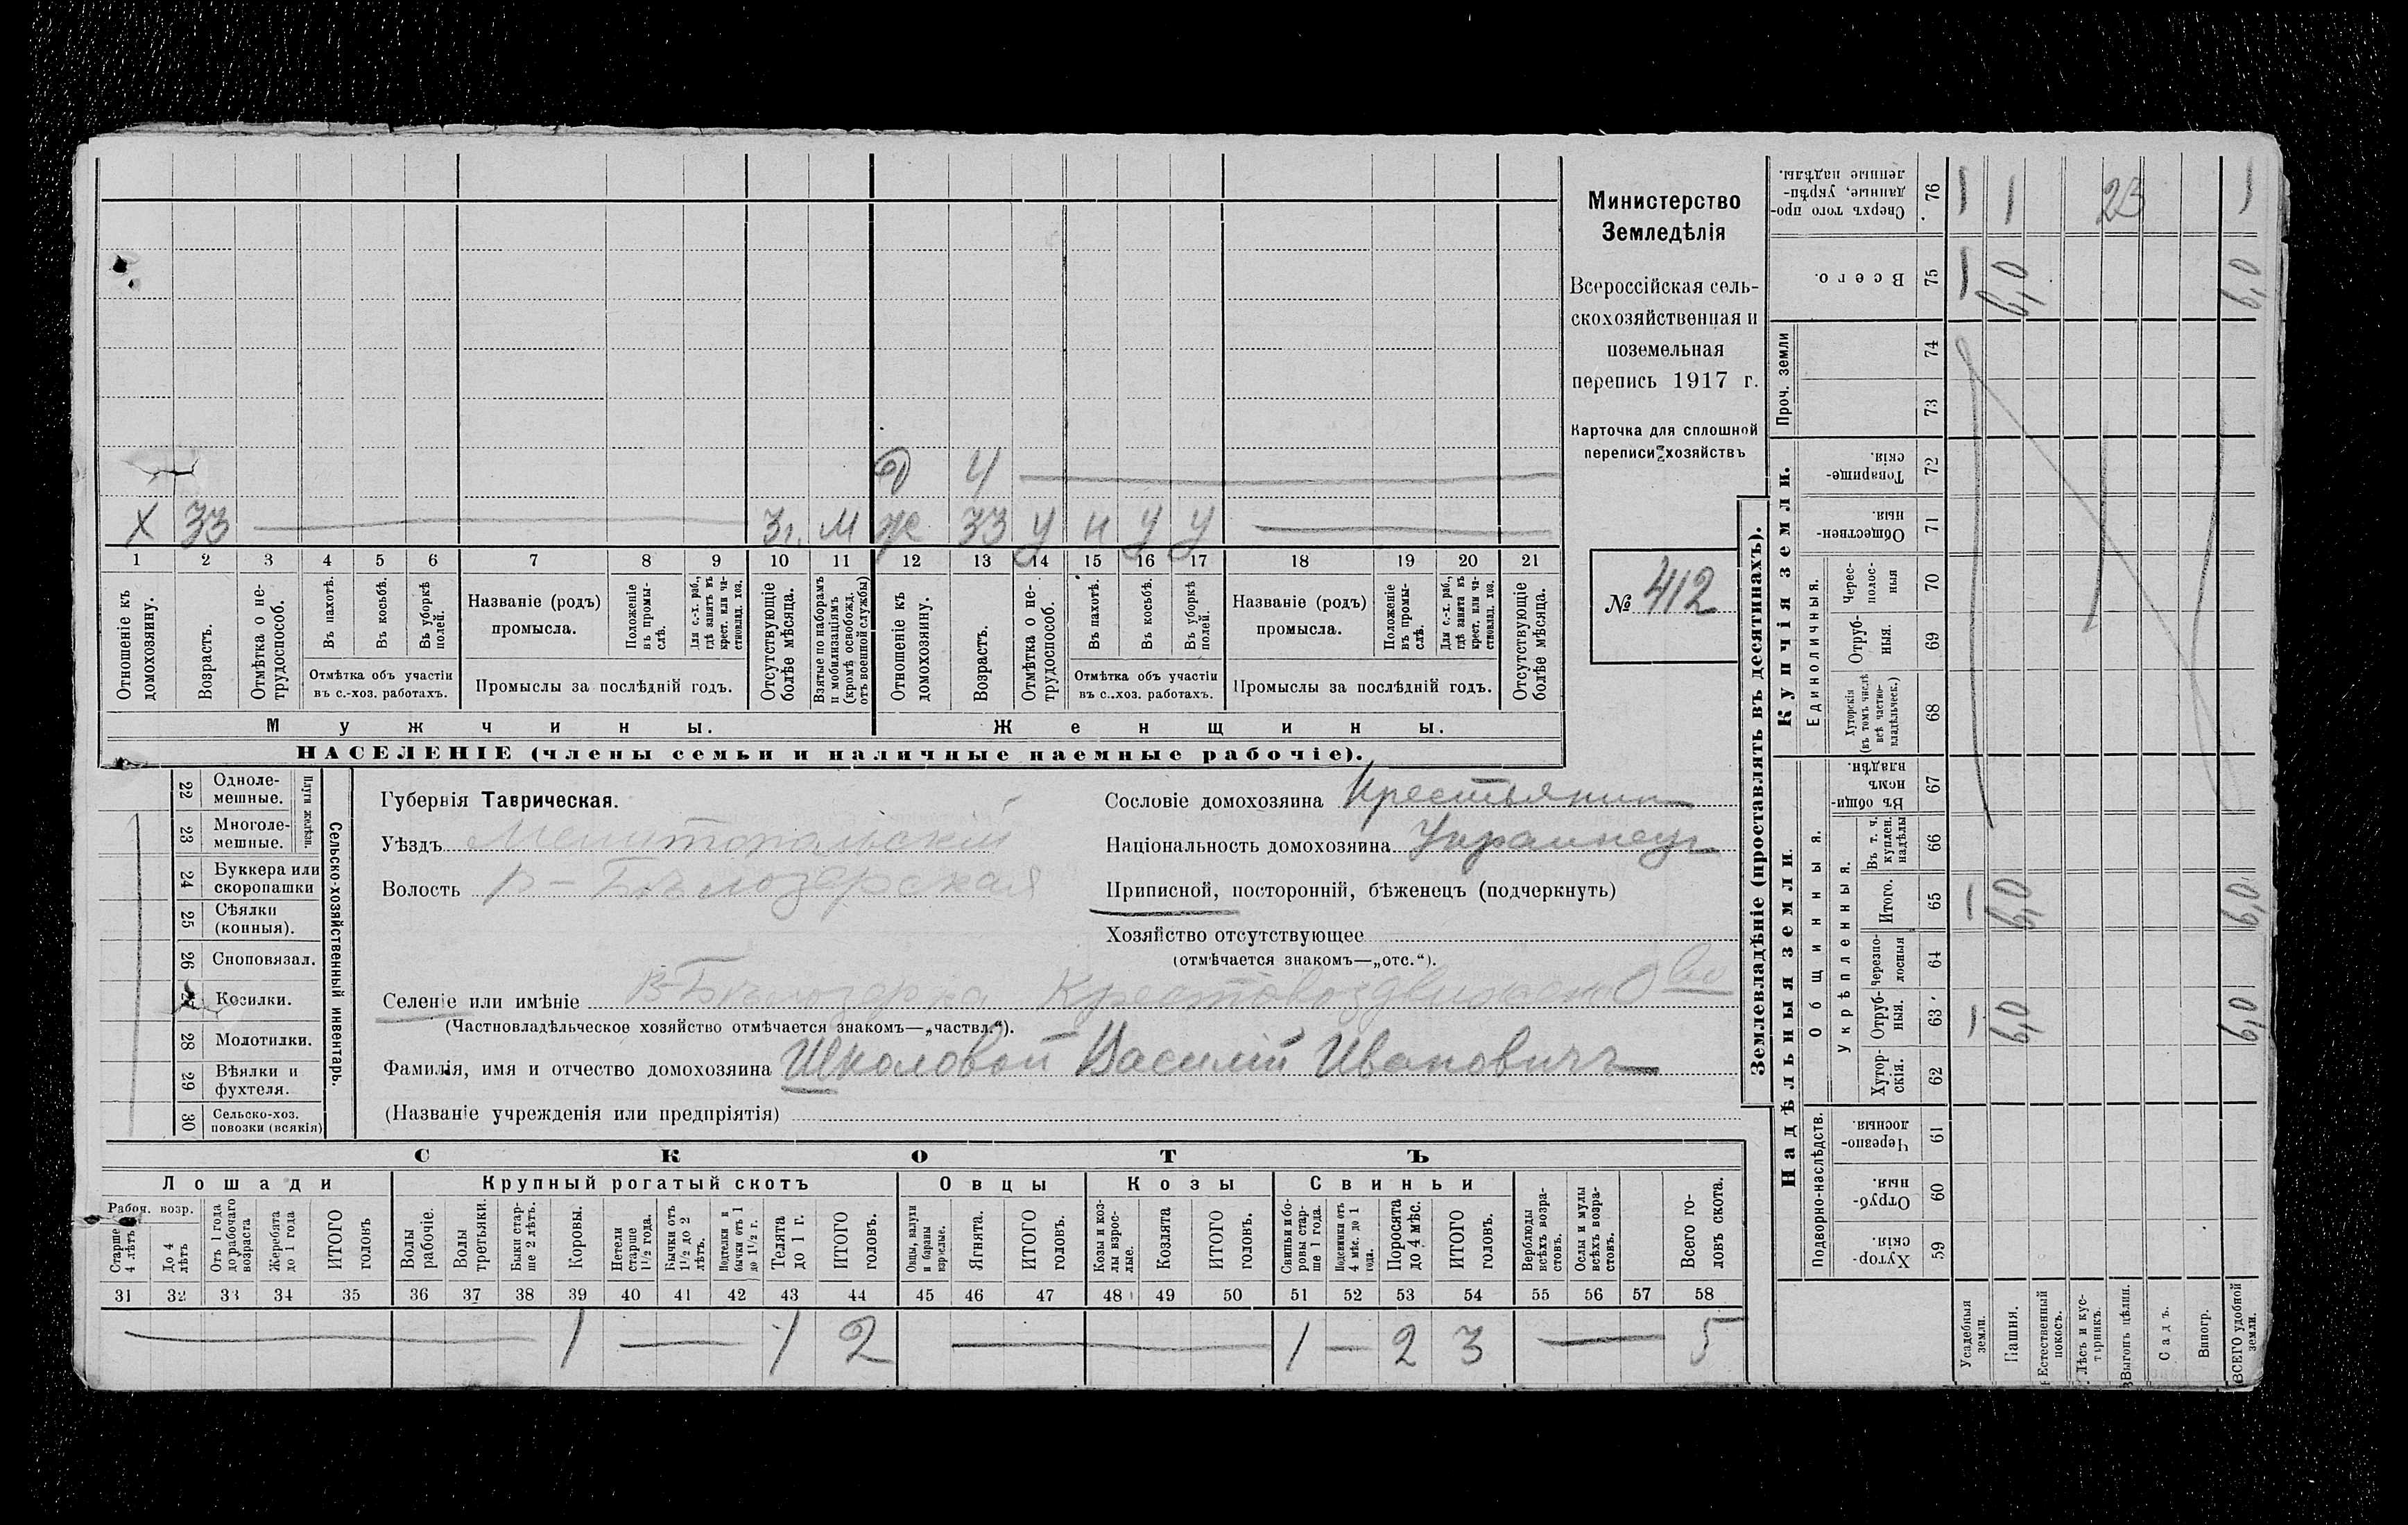 Министерство
Земледѣлія
Всероссійская сель-
скохозяйственная и
поземельная
перепись 1917 г.
Карточка для сплошной
переписи хозяйствъ
№ 412
д 4
Х 33 М ж 33 у н у у
1 2 3 4 5 6 7 8 9 10 11 12 13 14 15 16 17 18 19 20 21
Отношеніе къ домохозяину.
Возрастъ.
Отмѣтка о не-трудоспособ.
Въ пахотѣ.
Въ косьбѣ.
Въ уборкѣ полей.
Отмѣтка объ участіи въ с.-хоз. работахъ.
Названіе (родъ) промысла.
Положеніе въ промы-слѣ.
Для с.-х. раб., гдѣ занятъ въ крест. или ча-стновлад. хоз.
Промыслы за послѣдній годъ.
Отсутствующіе болѣе мѣсяца.
Взятые по наборамъ и мобилизаціямъ (кромѣ освобожд. отъ военной службы)
Отношеніе къ домохозяину.
Возрастъ.
Отмѣтка о не-трудоспособ.
Въ пахотѣ.
Въ косьбѣ.
Въ уборкѣ полей.
Отмѣтка объ участіи въ с.-хоз. работахъ.
Названіе (родъ) промысла.
Положеніе въ промы-слѣ.
Для с.-х. раб., гдѣ занята въ крест. или ча-стновлад. хоз.
Промыслы за послѣдній годъ.
Отсутствующіе болѣе мѣсяца.
Мужчины. Женщины.
НАСЕЛЕНІЕ (члены семьи и наличные наемные рабочіе).
Сельско-хозяйственный инвентарь.
Плуги желѣзн.
22 Одноле-мешные.
23 Многоле-мешные.
24 Буккера или скоропашки
25 Сѣялки (конныя).
26 Сноповязал.
27 Косилки.
28 Молотилки.
29 Вѣялки и фухтеля.
30 Сельско-хоз. повозки (всякія)
Губернія Таврическая.
Уѣздъ Мелитопольскій
Волость В-Бѣлозерская
Сословіе домохозяина Крестьянин
Національность домохозяина Украинец
Приписной, посторонній, бѣженецъ (подчеркнуть)
Хозяйство отсутствующее
(отмѣчается знакомъ—„отс.“).
Селеніе или имѣніе В-Бѣлозерка Крестовоздвижен
(Частновладѣльческое хозяйство отмѣчается знакомъ—„частвл.“).
Фамилія, имя и отчество домохозяина Школовой Василій Ивановичъ
(Названіе учрежденія или предпріятія)
СКОТЪ
Лошади Крупный рогатый скотъ Овцы Козы Свиньи
Рабоч. возр.
Старше 4 лѣтъ
До 4 лѣтъ
Отъ 1 года до рабочаго возраста
Жеребята до 1 года
ИТОГО головъ
Волы рабочіе.
Волы третьяки.
Быки стар-ше 2 лѣтъ.
Коровы.
Нетели старше 1½ года.
Бычки отъ 1½ до 2 лѣтъ.
Подтелки и бычки отъ 1 до 1½ г.
Телята до 1 г.
ИТОГО головъ.
Овцы, валухи и бараны взрослые.
Ягнята.
ИТОГО головъ.
Козы и коз-лы взрос-лые.
Козлята
ИТОГО головъ.
Свиньи и бо-ровы стар-ше 1 года.
Подсвинки отъ 4 мѣс. до 1 года.
Поросята до 4 мѣс.
ИТОГО головъ.
Верблюды всѣхъ возра-стовъ.
Ослы и мулы всѣхъ возра-стовъ.
Всего го-ловъ скота.
31 32 33 34 35 36 37 38 39 40 41 42 43 44 45 46 47 48 49 50 51 52 53 54 55 56 57 58
1 1 2 1 2 3 5
Землевладѣніе (проставлять въ десятинахъ).
Сверхъ того про-данные, укрѣп-ленные надѣлы. 76 23
Всего. 75 6,0 6,0
Проч. земли
74
73
Купчія земли.
Товарище-скія. 72
Обществен-ныя. 71
Единоличныя.
Черес-полос-ныя 70
Отруб-ныя. 69
Хуторскія (въ томъ числѣ всѣ частно-владѣльческ.) 68
Надѣльныя земли.
Общинныя.
Въ общи-номъ владѣн. 67
Укрѣпленныя.
Въ т. ч. куплен. надѣлы 66
Итого. 65 6,0 6,0
Черезпо-лосныя 64
Отруб-ныя. 63 6,0 6,0
Хутор-скія. 62
Подворно-наслѣдств.
Черезпо-лосныя. 61
Отруб-ныя. 60
Хутор-скія. 59
Усадебныя земли.
Пашня.
Естественный покосъ.
Лѣсъ и кус-тарникъ.
Выгонъ цѣлин.
Садъ.
Виногр.
ВСЕГО удобной земли.